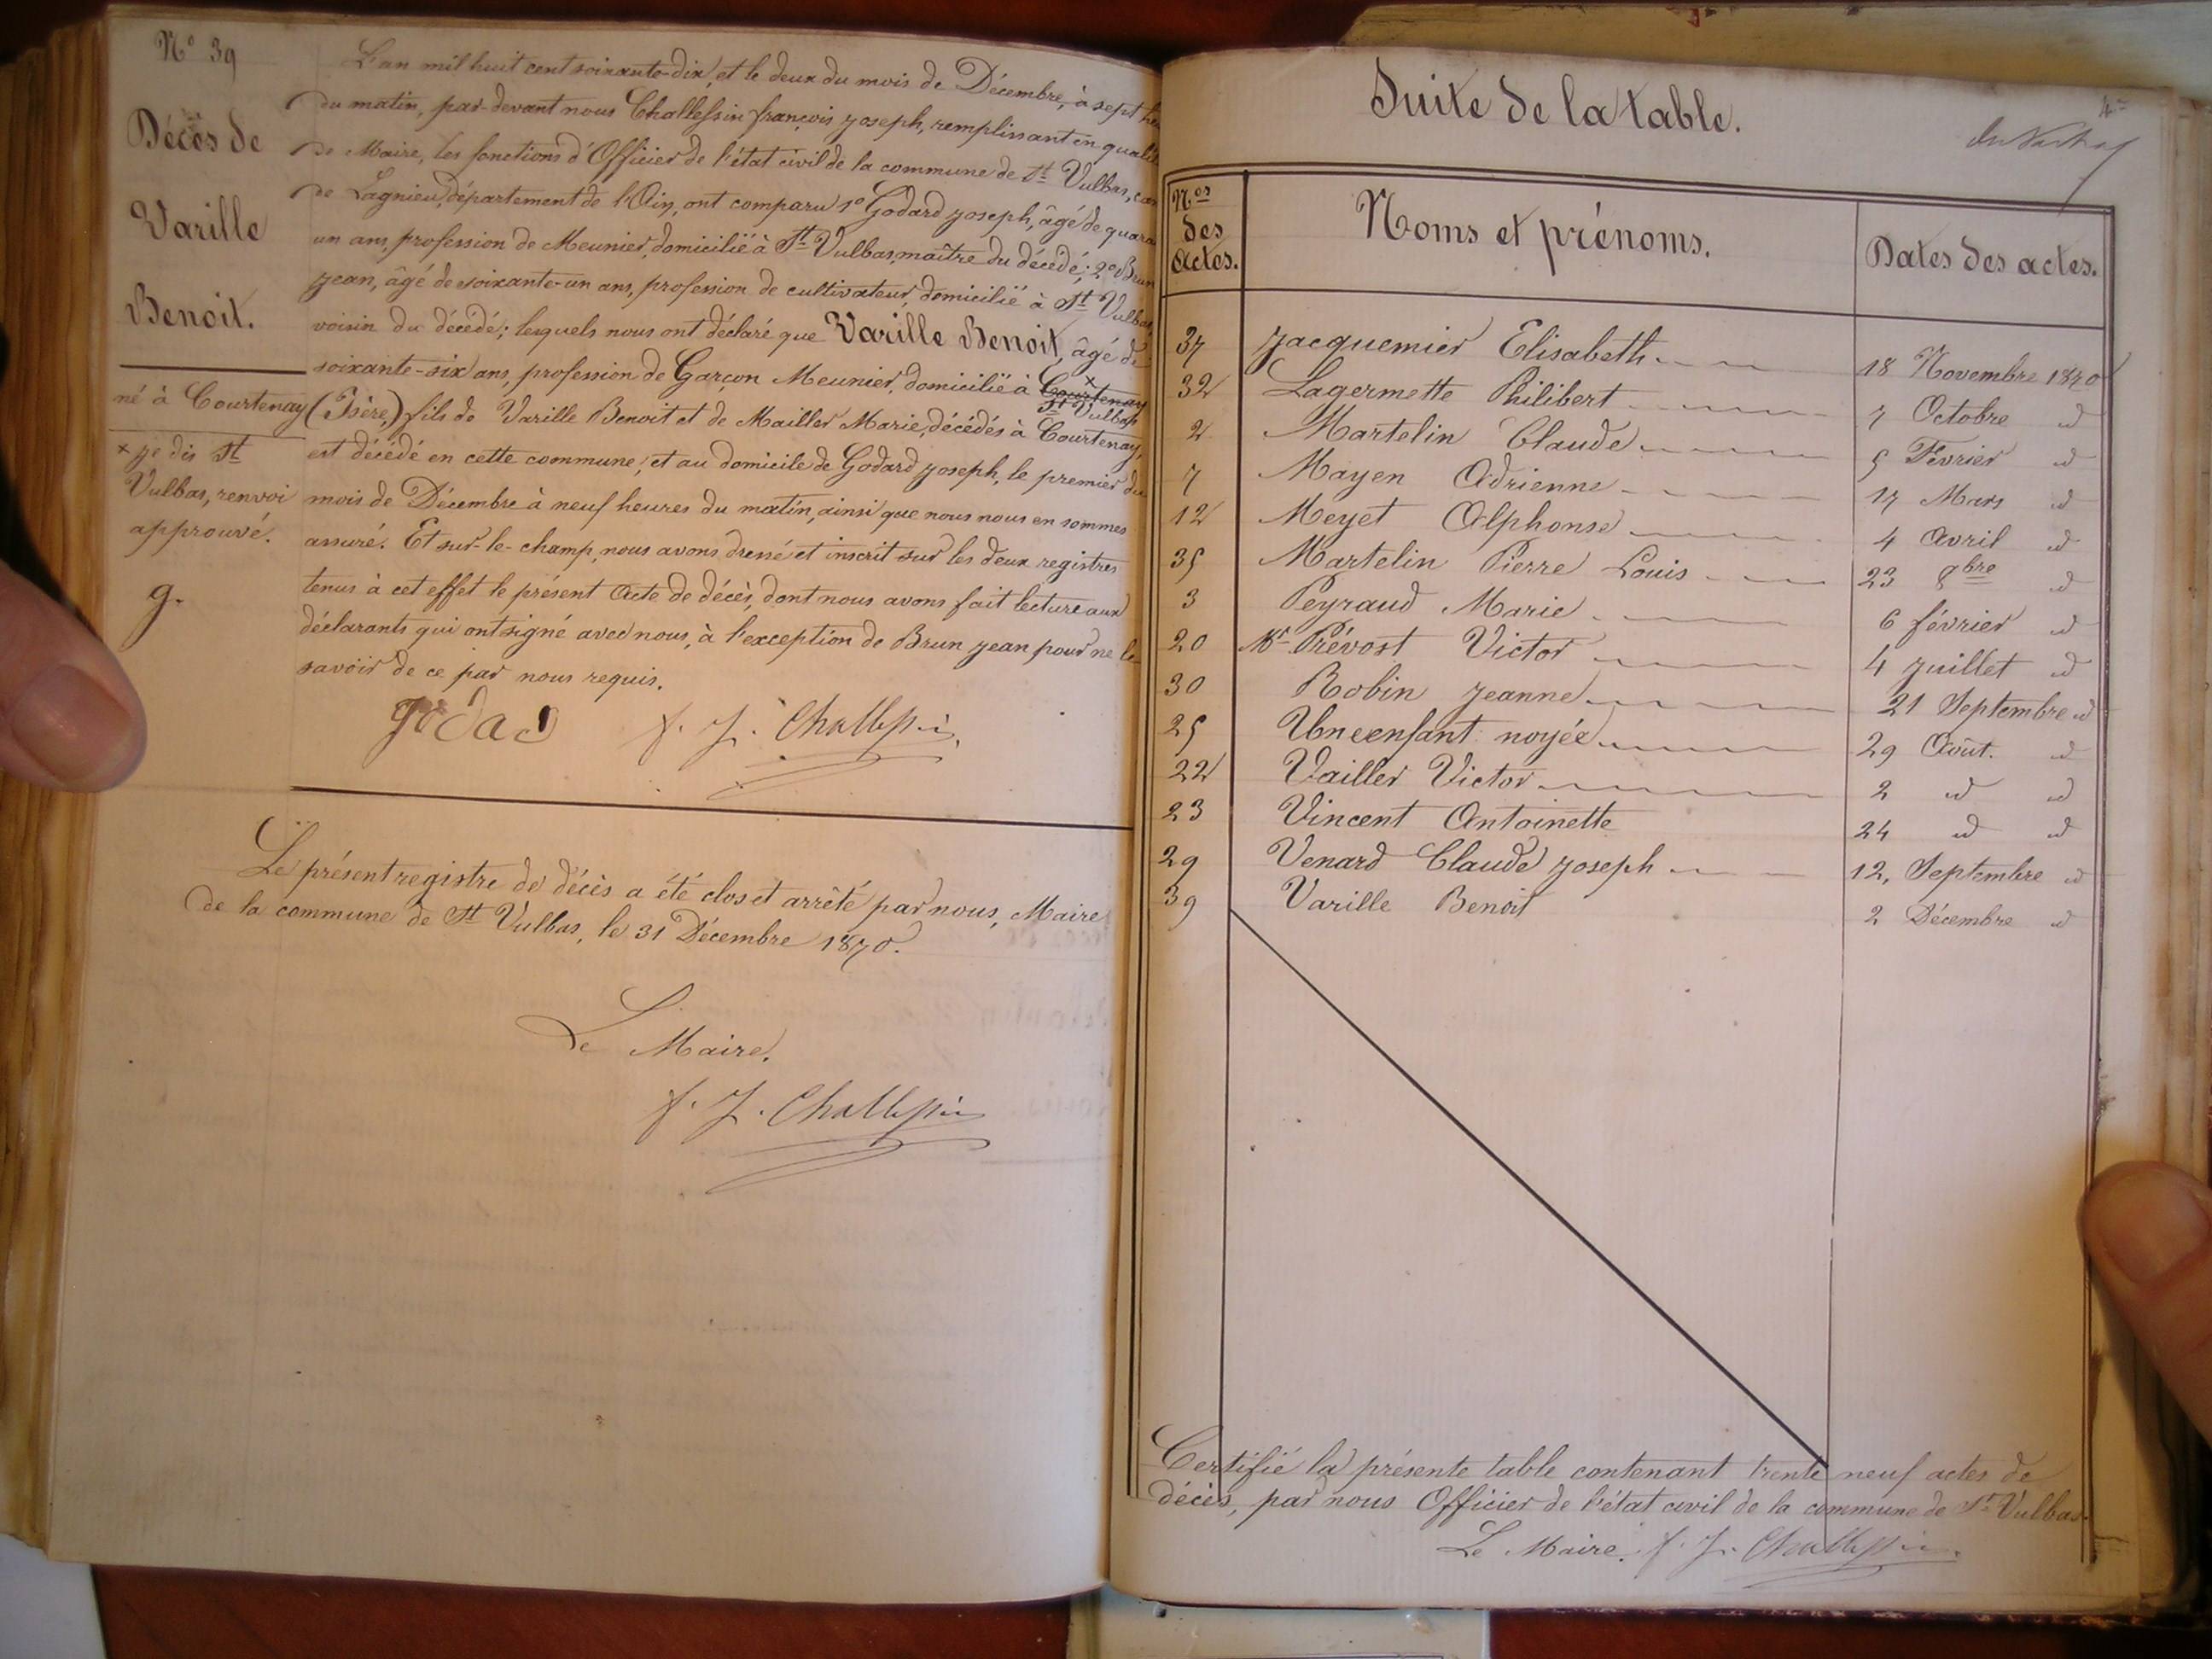 N° 39
Décès de
Varille
Benoit.
né à Courtenay
x je dis St
Vulbas, renvoi
approuvé.
g.
L'an mil huit cent soixante-dix, et le deux du mois de Décembre, à sept
du matin, par-devant nous Challessin françois joseph, remplissant en qualité
de Maire, les fonctions d'Officier de l'état civil de la commune de St Vulbas,
de Lagnieu, département de l'Ain, ont comparu 1° Godard joseph, âgé de quara
un ans, profession de Meunier, domicilié à St Vulbas, maître du décédé; 2° Brun
jean, âgé de soixante-un ans, profession de cultivateur, domicilié à St Vulbas,
voisin du décédé; lesquels nous ont déclaré que Varille Benoit, âgé de
soixante-six ans, profession de Garçon Meunier, domicilié à Courtenay x
St Vulbas
(Isère,) fils de Varille Benoit et de Mailler Marie, décédés à Courtenay,
est décédé en cette commune, et au domicile de Godard joseph, le premier du
mois de Décembre à neuf heures du matin, ainsi que nous nous en sommes
assuré. Et sur-le-champ, nous avons dressé et inscrit sur les deux registres
tenus à cet effet le présent Acte de décès, dont nous avons fait lecture aux
déclarants qui ont signé avec nous, à l'exception de Brun jean pour ne le
savoir de ce par nous requis.
godad f. J. Challessin
Le présent registre de décès a été clos et arrêté par nous, Maire
de la commune de St Vulbas, le 31 Décembre 1870.
Le Maire.
f. J. Challessin
Suite de la table.
4
Nos des Actes. Noms et prénoms. Dates des actes.
37 Jacquemier Elisabeth 18 Novembre 1870
32 Lagermette Philibert 7 Octobre id
2 Martelin Claude 5 Février id
7 Mayen Adrienne 17 Mars id
12 Meyet Alphonse 4 Avril id
35 Martelin Pierre Louis 23 8bre id
3 Peyraud Marie 6 février id
20 Mr Prévost Victor 4 juillet id
30 Robin jeanne 21 Septembre id
25 Une enfant noyée 29 Août. id
22 Vailler Victor 2 id id
23 Vincent Antoinette 24 id id
29 Venard Claude joseph 12, Septembre id
39 Varille Benoit 2 Décembre id
Certifié la présente table contenant trente neuf actes de
décès, par nous Officier de l'état civil de la commune de St Vulbas.
Le Maire. f. J. Challessin